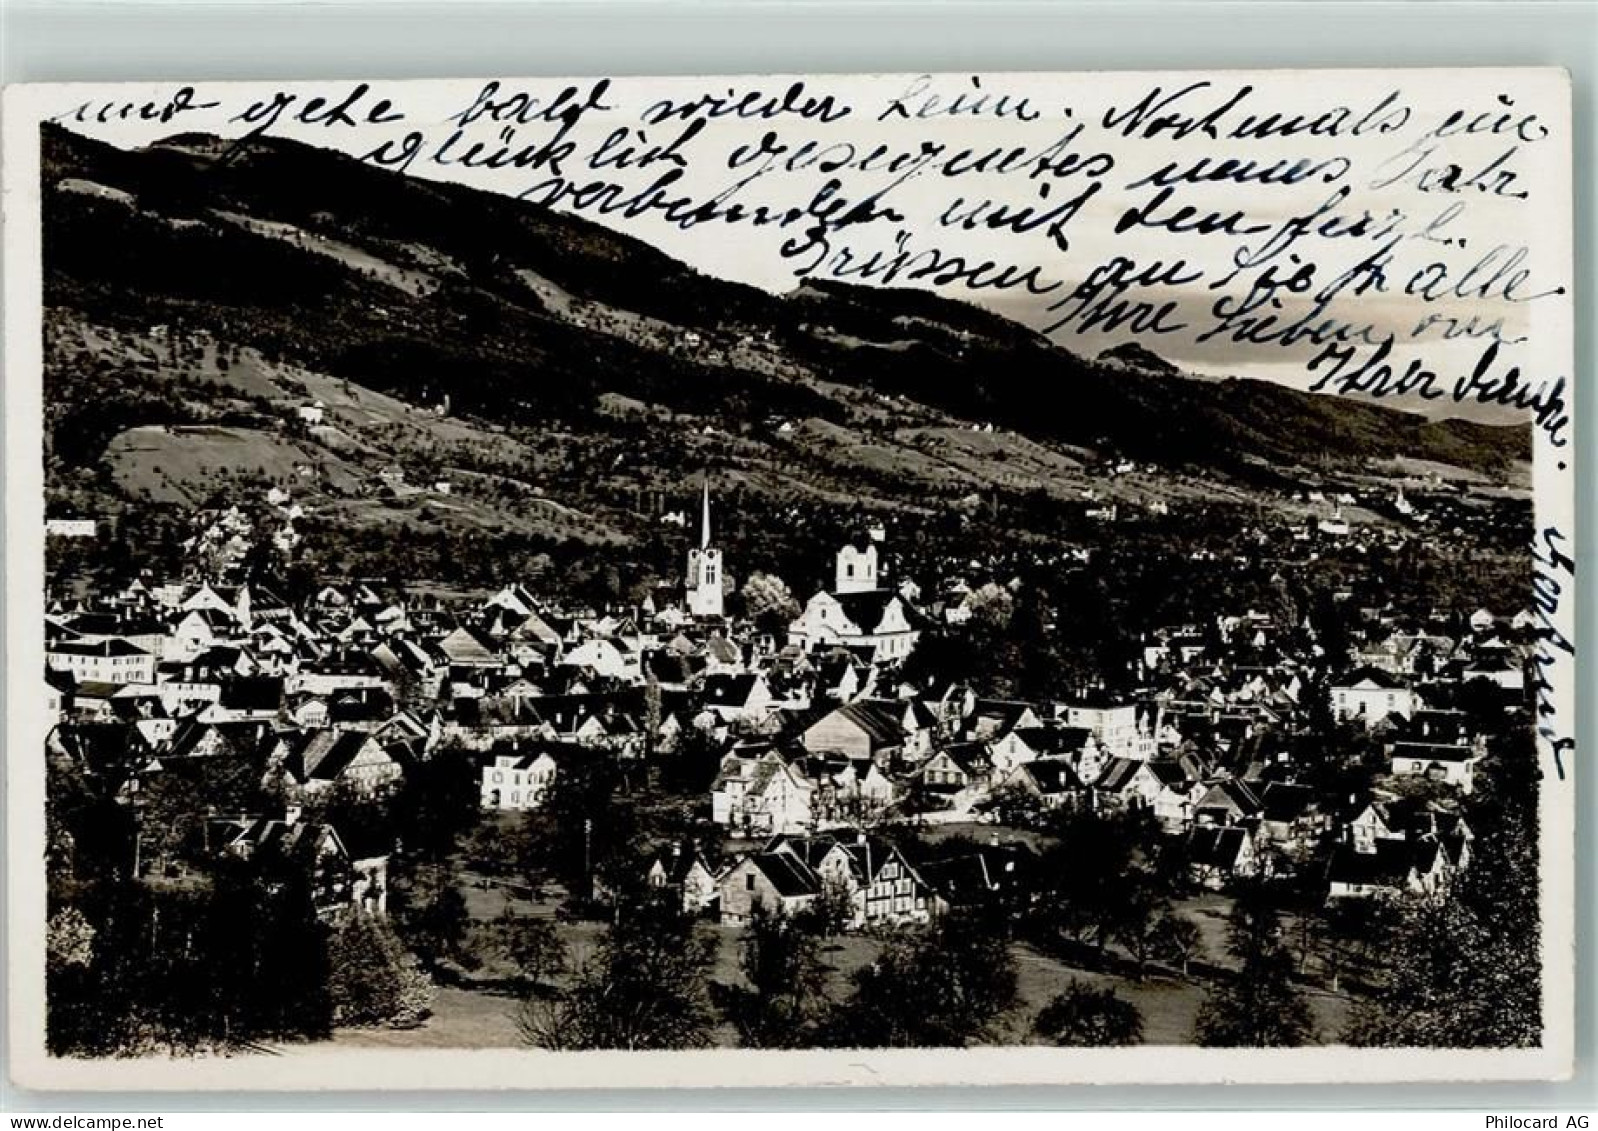 und gehe bald wieder heim. Nochmals ein
glücklich gesegnetes neues Jahr
verbunden mit den herzl.
Grüssen an Sie & alle
Ihre Lieben von
Ihrer dankb.
Philocard AG